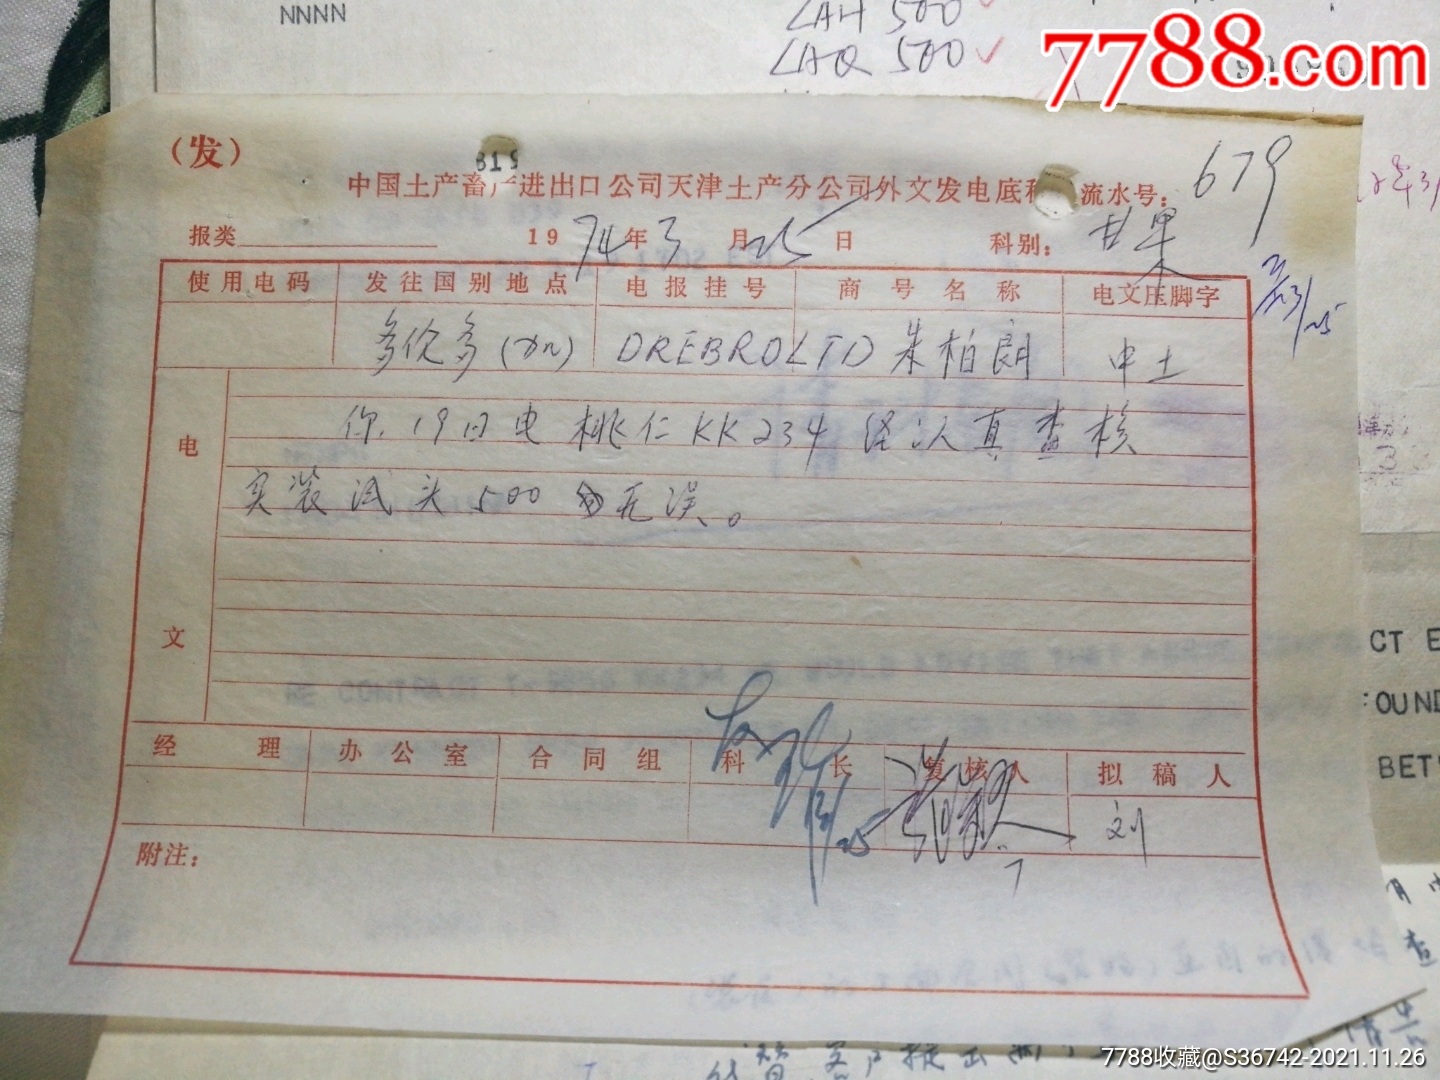 NNNN
LAH 500
LAQ 500
7788.com
(发)
819
中国土产畜产进出口公司天津土产分公司外文发电底稿 流水号: 679
报类 1974年3月25日 科别: 干果
使用电码 发往国别地点 电报挂号 商号名称 电文压脚字
多伦多(加) DREBROLTD 朱柏朗 中土
电文
你19日电桃仁KK234经认真查核
实装试头500无误。
RE CONTRACT
CT E
OUND
BET
经理 办公室 合同组 科长 复核人 拟稿人
25 刘
附注:
7788收藏@S36742-2021.11.26